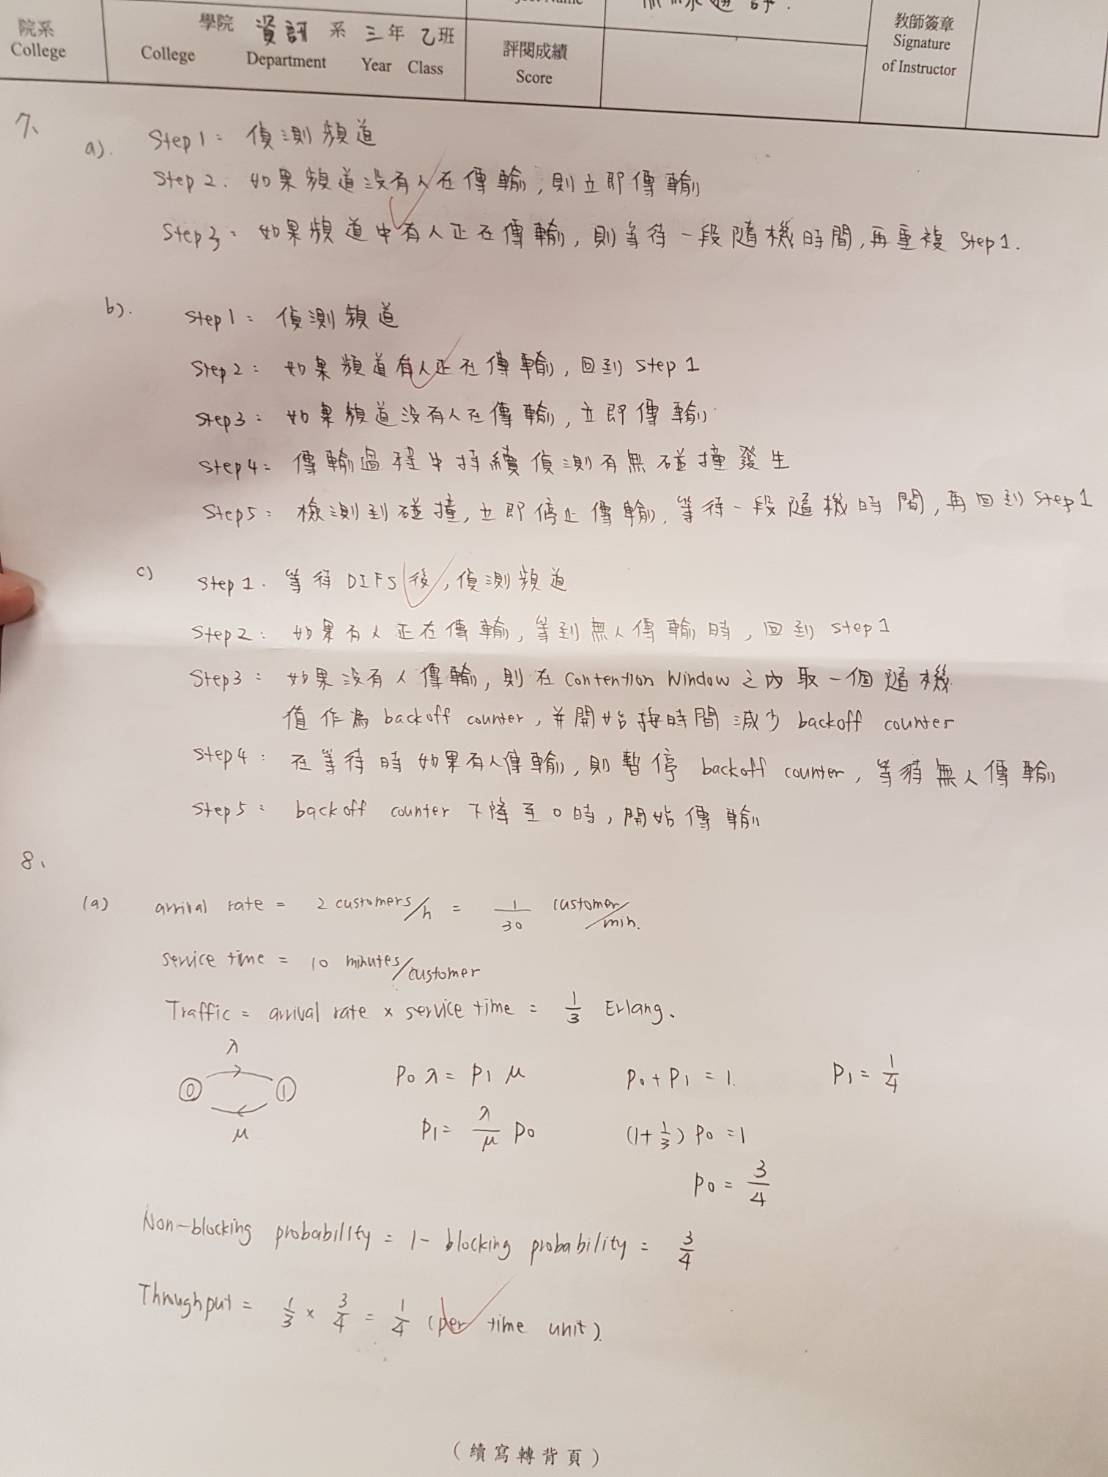 院系
College
學院 資訊 系 三 年 乙 班
College Department Year Class
評閱成績
Score
教師簽章
Signature
of Instructor
7、
a). Step 1: 偵測頻道
Step 2: 如果頻道沒有人在傳輸,則立即傳輸
Step 3: 如果頻道中有人正在傳輸,則等待一段隨機時間,再重複 Step 1.
b). Step 1: 偵測頻道
Step 2: 如果頻道有人正在傳輸,回到 Step 1
Step 3: 如果頻道沒有人在傳輸,立即傳輸
Step 4: 傳輸過程中持續偵測有無碰撞發生
Step 5: 檢測到碰撞,立即停止傳輸,等待一段隨機時間,再回到 Step 1
c) Step 1. 等待 DIFS 後,偵測頻道
Step 2: 如果有人正在傳輸,等到無人傳輸時,回到 Step 1
Step 3: 如果沒有人傳輸,則在 Contention Window 之內取一個隨機
值作為 backoff counter,并開始按時間減少 backoff counter
Step 4: 在等待時如果有人傳輸,則暫停 backoff counter,等待無人傳輸
Step 5: backoff counter 下降至 0 時,開始傳輸
8、
(a) arrival rate = 2 customers/h = 1/30 customer/min.
service time = 10 minutes/customer
Traffic = arrival rate × service time = 1/3 Erlang.
λ
0 1
μ
P0 λ = P1 μ P0 + P1 = 1. P1 = 1/4
P1 = λ/μ P0 (1+1/3) P0 = 1
P0 = 3/4
Non-blocking probability = 1 - blocking probability = 3/4
Throughput = 1/3 × 3/4 = 1/4 (per time unit).
(續寫轉背頁)